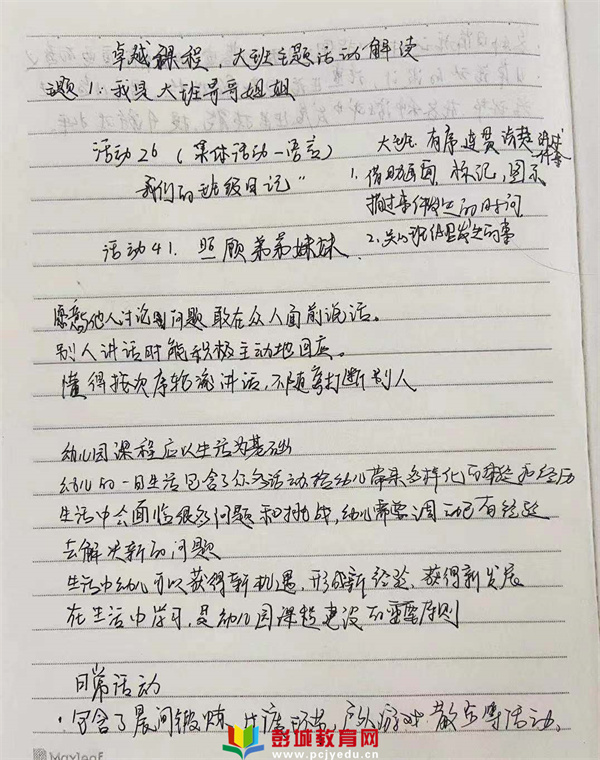 卓越课程，大班主题活动解读
主题1：我是大班哥哥姐姐
活动26（集体活动—语言）
我们的班级日记"
大班：有序连贯清楚
1. 借助画面，标记，图示
描述事件发生的时间
活动41. 照顾弟弟妹妹.
2. 关心班级里发生的事
愿意与他人讨论问题 敢在众人面前说话。
别人讲话时能积极主动地回应。
懂得按次序轮流讲话，不随意打断别人
幼儿园课程应以生活为基础
幼儿的一日生活包含了许多活动，给幼儿带来多样化的体验和经历
生活中会面临很多问题和挑战，幼儿需要调动已有经验
去解决新的问题
生活中幼儿可以获得新机遇，形成新经验、获得新发展
在生活中学习，是幼儿园课程建设的重要原则
日常活动
·包含了晨间锻炼、生活环节，户外游戏 散步等活动。
Maxleaf
彭城教育网
www.pcjyedu.cn